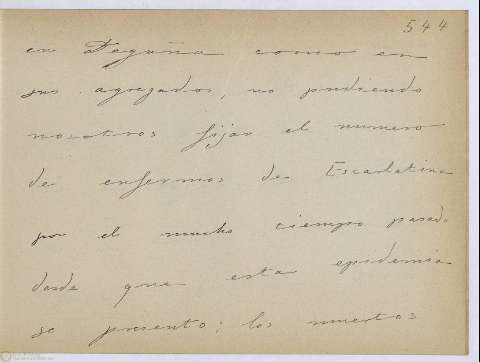 544
en Laguña como en
sus agregados, no pudiendo
nosotros fijar el numero
de enfermos de Escarlatina
por el mucho tiempo pasado
desde que esta epidemia
se presento; los muertos